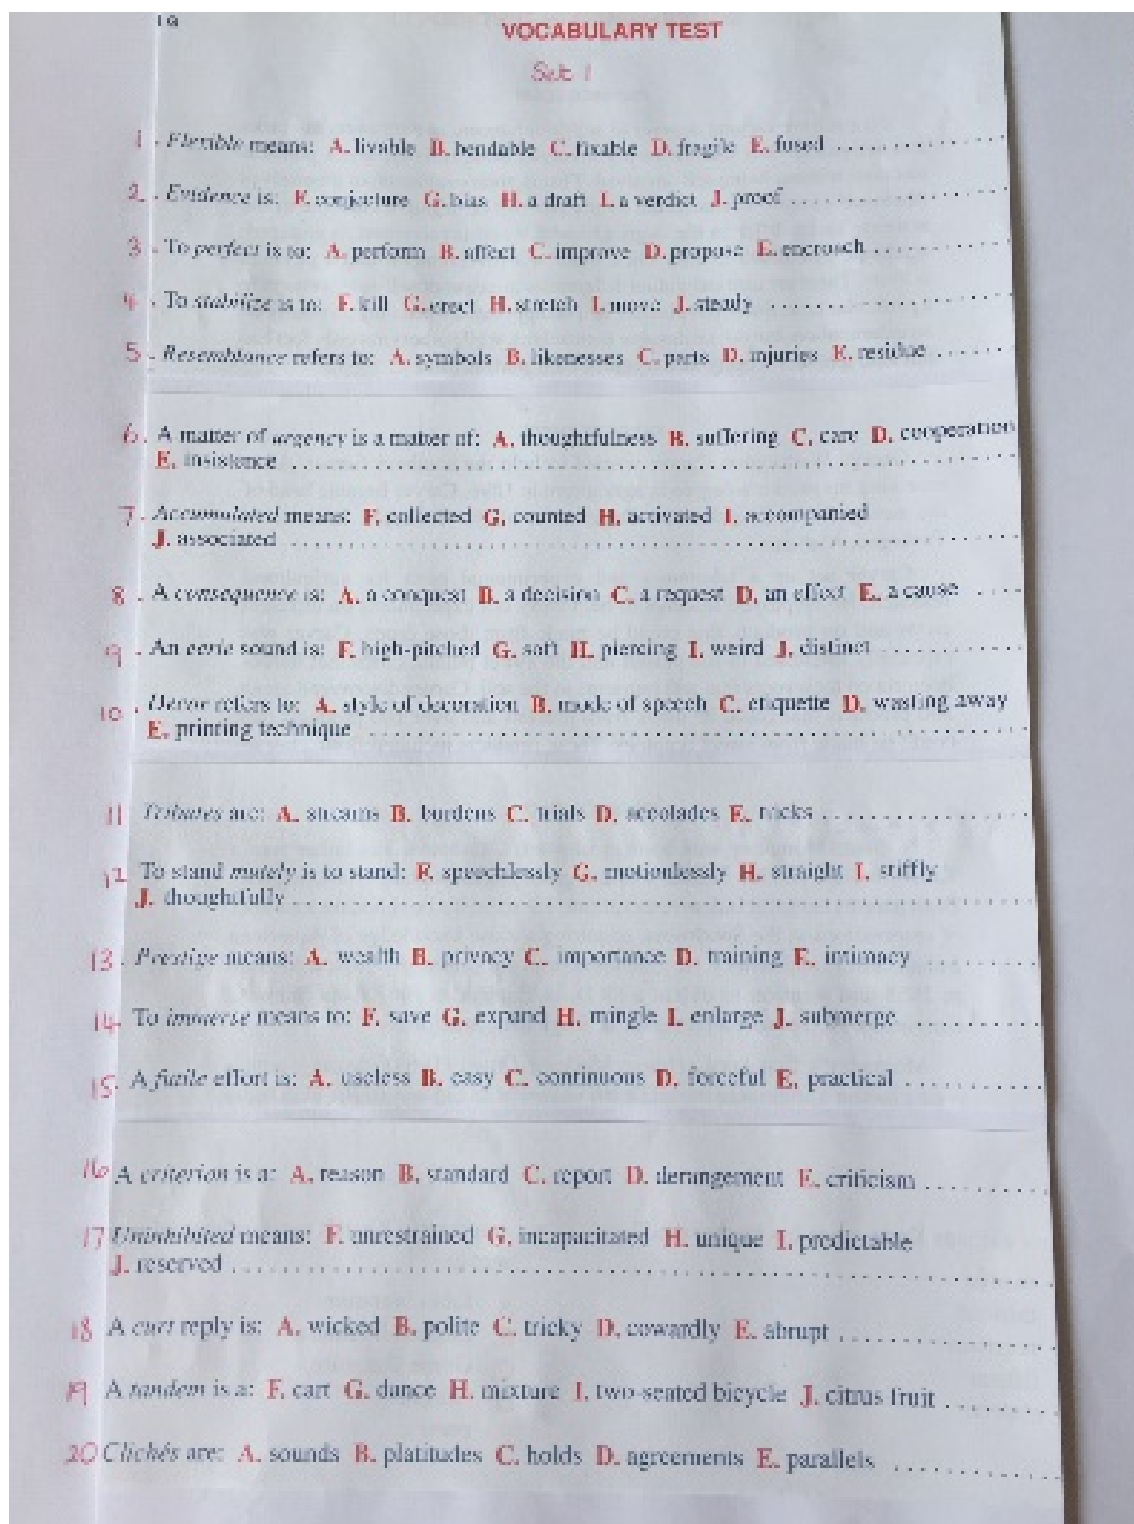 19
VOCABULARY TEST
Set 1
1 . Flexible means: A. livable B. bendable C. fixable D. fragile E. fused
2 . Evidence is: F. conjecture G. bias H. a draft I. a verdict J. proof
3 . To perfect is to: A. perform B. affect C. improve D. propose E. encroach
4 . To stabilize is to: F. kill G. erect H. stretch I. move J. steady
5 . Resemblance refers to: A. symbols B. likenesses C. parts D. injuries E. residue
6 . A matter of urgency is a matter of: A. thoughtfulness B. suffering C. care D. cooperation
E. insistence
7 . Accumulated means: F. collected G. counted H. activated I. accompanied
J. associated
8 . A consequence is: A. a conquest B. a decision C. a request D. an effect E. a cause
9 . An eerie sound is: F. high-pitched G. soft H. piercing I. weird J. distinct
10 . Decor refers to: A. style of decoration B. mode of speech C. etiquette D. wasting away
E. printing technique
11 Tributes are: A. streams B. burdens C. trials D. accolades E. tricks
12 To stand mutely is to stand: F. speechlessly G. motionlessly H. straight I. stiffly
J. thoughtfully
13 . Prestige means: A. wealth B. privacy C. importance D. training E. intimacy
14 To immerse means to: F. save G. expand H. mingle I. enlarge J. submerge
15 . A futile effort is: A. useless B. easy C. continuous D. forceful E. practical
16 A criterion is a: A. reason B. standard C. report D. derangement E. criticism
17 Uninhibited means: F. unrestrained G. incapacitated H. unique I. predictable
J. reserved
18 A curt reply is: A. wicked B. polite C. tricky D. cowardly E. abrupt
19 A tandem is a: F. cart G. dance H. mixture I. two-seated bicycle J. citrus fruit
20 Clichés are: A. sounds B. platitudes C. holds D. agreements E. parallels